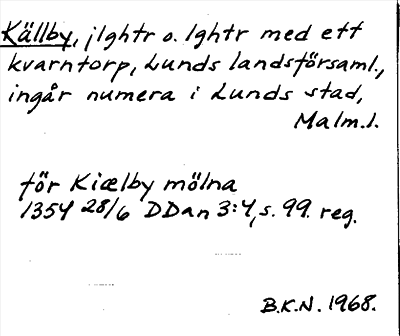 Källby, jlghtr o. lghtr med ett
kvarntorp, Lunds landsförsaml.,
ingår numera i Lunds stad,
Malm.l.
för Kiælby mölna
1354 28/6 DDan 3:4, s. 99. reg.
B.K.N. 1968.